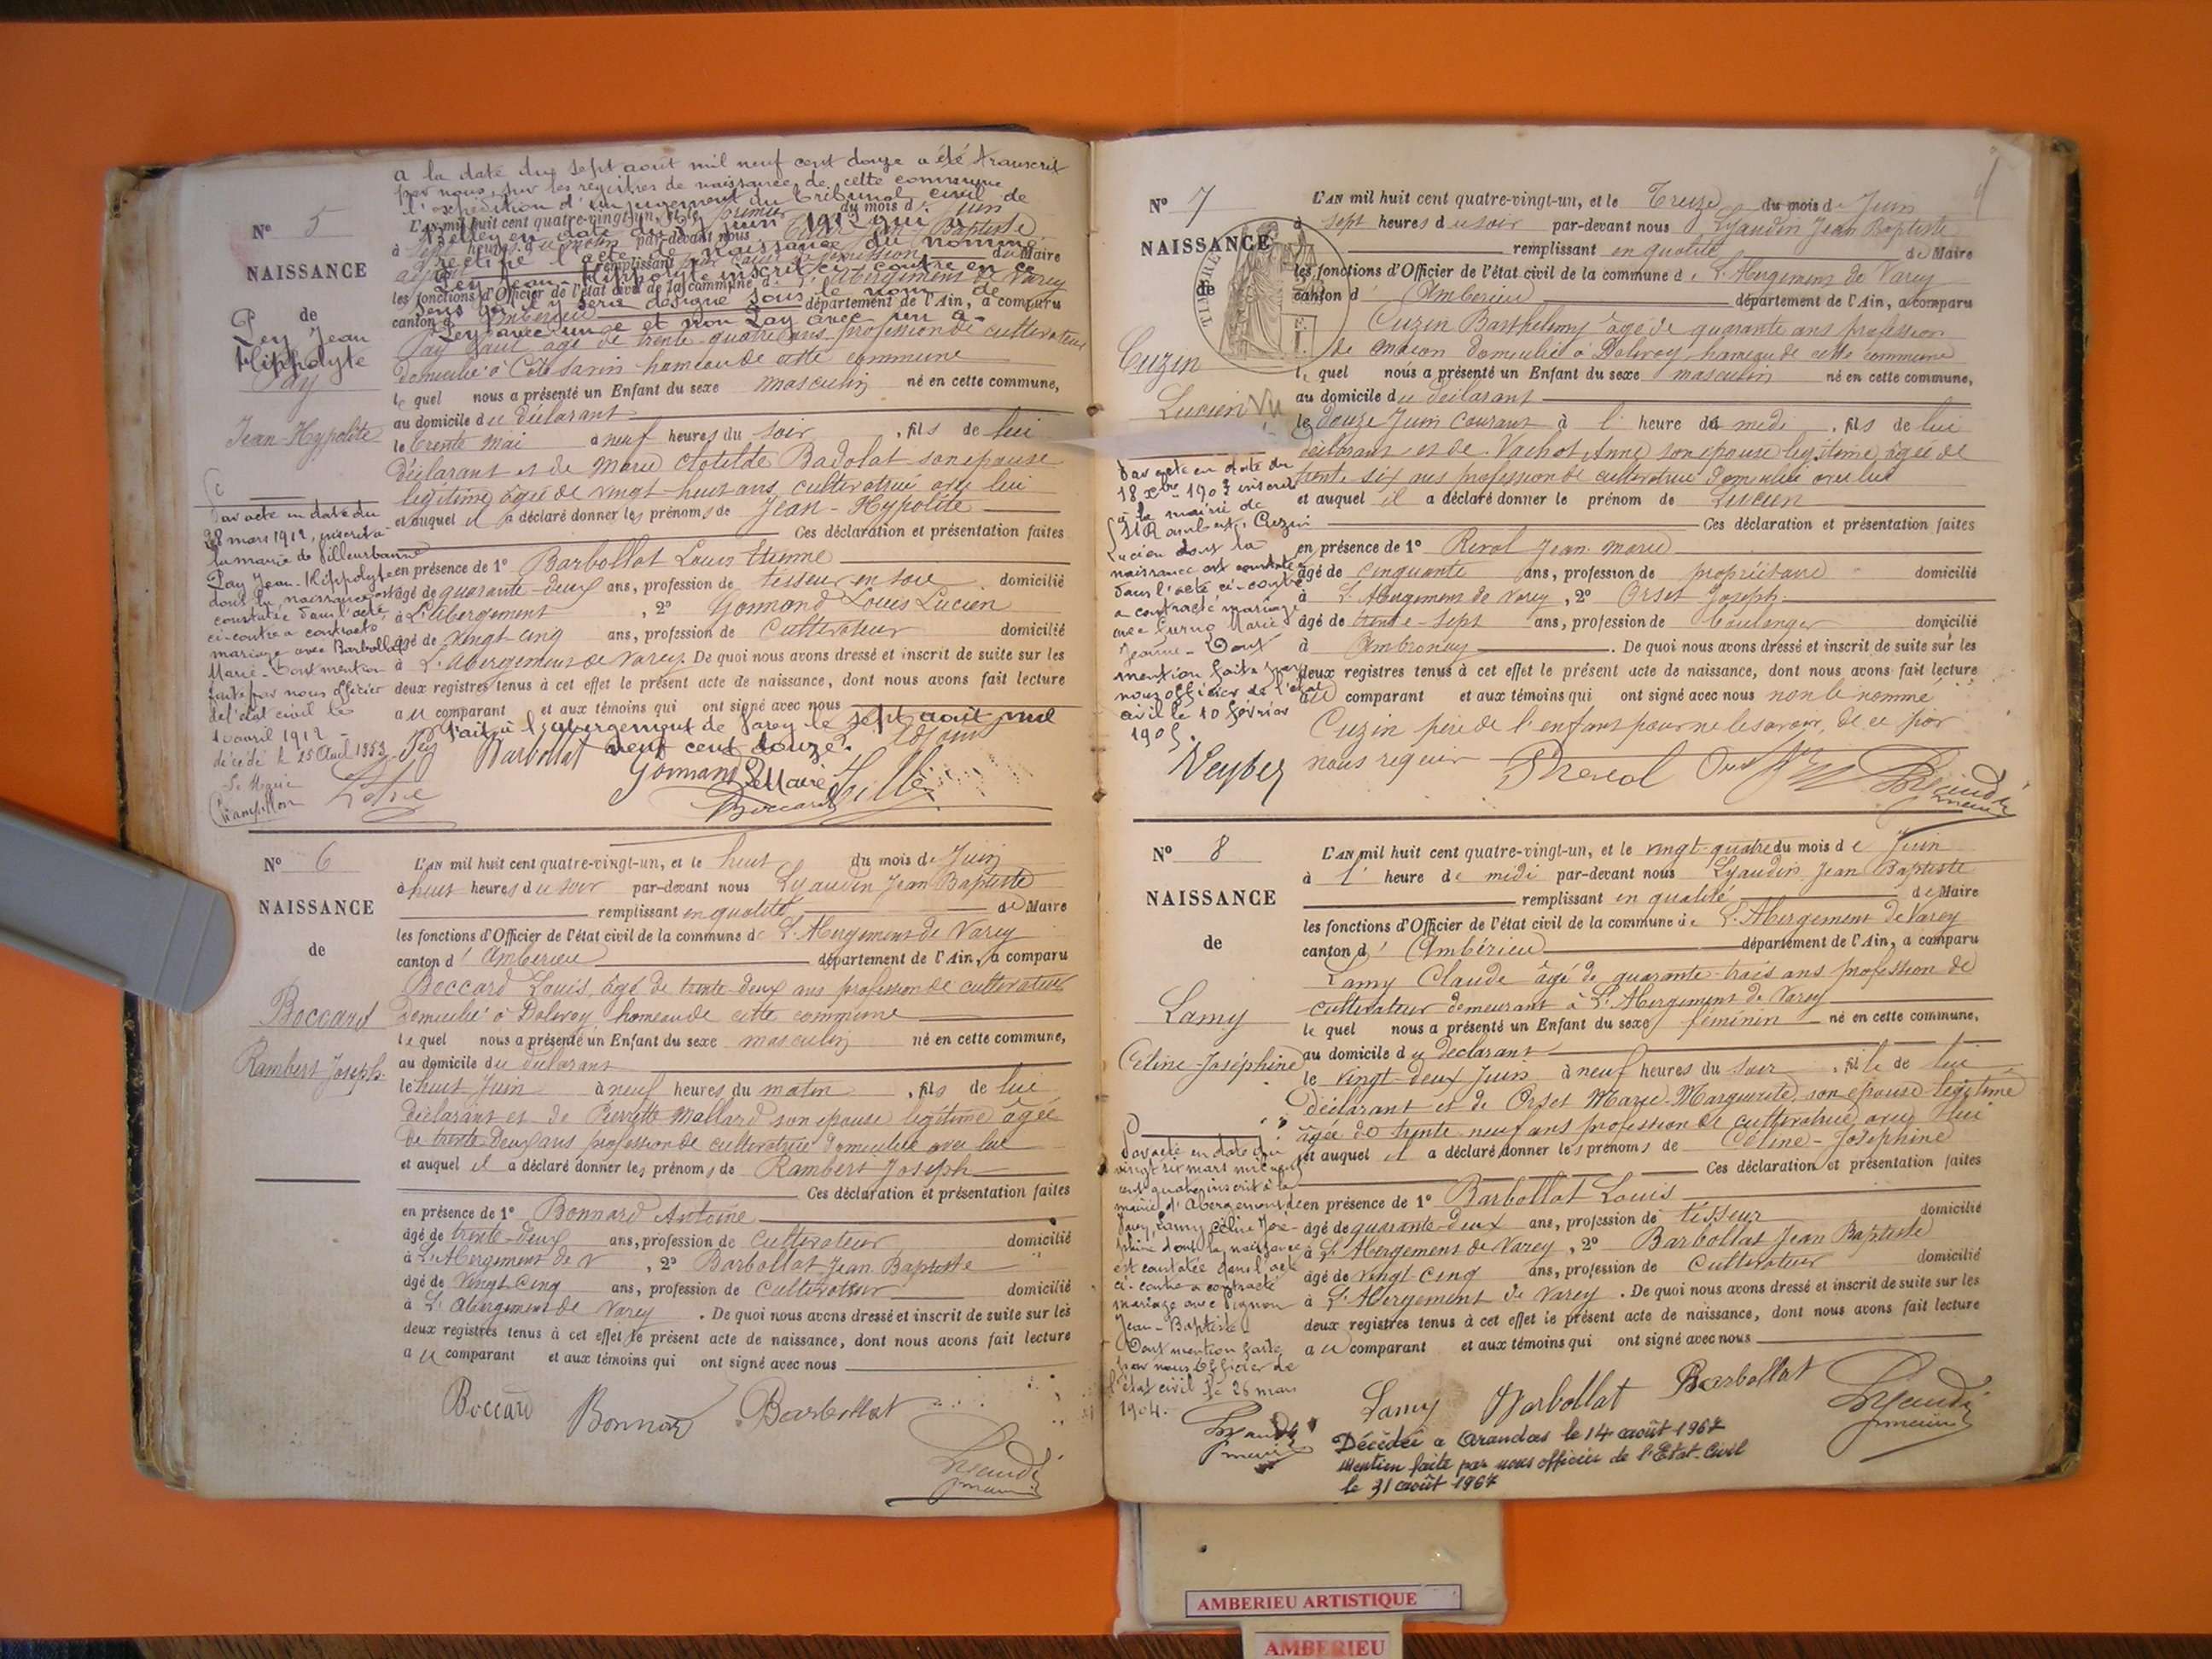 a la date du sept août mil neuf cent douze a été transcrit
par nous, sur les registres de naissance de cette commune
l'expédition d'un jugement du tribunal civil de
Belley en date du juin 1912 qui
rectifie l'acte de naissance du nommé
Pey Jean Hippolyte inscrit ci-contre en ce
sens qu'il y sera désigné sous le nom de
Pey avec un e et non Pay avec un a.
N° 5
NAISSANCE
de
Pey Jean
Hippolyte
Pay
Jean-Hypolite
L'AN mil huit cent quatre-vingt-un, et le premier du mois d Juin
à sept heures du matin par-devant nous Jean Baptiste
adjoint remplissant du Maire
les fonctions d'Officier de l'état civil de la commune de L'Abergement de Varey
canton d'Ambérieu département de l'Ain, a comparu
Pay âgé de trente quatre ans profession de cultivateur
domicilié à Côte Savin hameau de cette commune
lequel nous a présenté un Enfant du sexe masculin né en cette commune,
au domicile du déclarant
le trente mai à neuf heures du soir, fils de lui
déclarant et de Marie Clotilde Badolat son épouse
légitime âgée de vingt-huit ans cultivatrice avec lui
et auquel il a déclaré donner les prénoms de Jean-Hypolite
Ces déclaration et présentation faites
en présence de 1° Barbollat Louis Etienne
âgé de quarante-deux ans, profession de tisseur en soie domicilié
à L'Abergement, 2° Gonnand Louis Lucien
âgé de vingt cinq ans, profession de cultivateur domicilié
à L'Abergement de Varey. De quoi nous avons dressé et inscrit de suite sur les
deux registres tenus à cet effet le présent acte de naissance, dont nous avons fait lecture
au comparant et aux témoins qui ont signé avec nous
Fait à l'abergement de Varey le sept août mil
neuf cent douze.
Pey Barbollat Gonnand Le Maire
Boccard
Par acte en date du
28 mars 1912, inscrit à
la mairie de Villeurbanne
Pay Jean-Hippolyte
dont la naissance est
constatée dans l'acte
ci-contre a contracté
mariage avec Barbollat
Marie. Dont mention
faite par nous Officier
de l'état civil le
10 avril 1912
décédé le 25 Août 1953
Le Maire
N° 6
NAISSANCE
de
Boccard
Rambert Joseph
L'AN mil huit cent quatre-vingt-un, et le huit du mois de Juin
à huit heures du soir par-devant nous Lyaudin Jean Baptiste
remplissant en qualité de Maire
les fonctions d'Officier de l'état civil de la commune de L'Abergement de Varey
canton d'Ambérieu département de l'Ain, a comparu
Boccard Louis, âgé de trente-deux ans profession de cultivateur
domicilié à Dalivoy hameau de cette commune
lequel nous a présenté un Enfant du sexe masculin né en cette commune,
au domicile du déclarant
le huit Juin à neuf heures du matin, fils de lui
déclarant et de Pierrette Mallard son épouse légitime âgée
de trente-deux ans profession de cultivatrice domiciliée avec lui
et auquel il a déclaré donner les prénoms de Rambert Joseph
Ces déclaration et présentation faites
en présence de 1° Bonnard Antoine
âgé de trente-deux ans, profession de cultivateur domicilié
à L'Abergement de V, 2° Barbollat Jean Baptiste
âgé de vingt cinq ans, profession de cultivateur domicilié
à L'Abergement de Varey. De quoi nous avons dressé et inscrit de suite sur les
deux registres tenus à cet effet le présent acte de naissance, dont nous avons fait lecture
au comparant et aux témoins qui ont signé avec nous
Boccard Bonnard Barbollat
Lyaudin
maire
N° 7
NAISSANCE
de
Cuzin
Lucien
Vu
TIMBRE
L'AN mil huit cent quatre-vingt-un, et le Treize du mois de Juin
à sept heures du soir par-devant nous Lyaudin Jean Baptiste
remplissant en qualité de Maire
les fonctions d'Officier de l'état civil de la commune de L'Abergement de Varey
canton d'Ambérieu département de l'Ain, a comparu
Cuzin Barthelemy âgé de quarante ans profession
de maçon domicilié à Dalivoy hameau de cette commune
lequel nous a présenté un Enfant du sexe masculin né en cette commune,
au domicile du déclarant
le douze Juin courant à l' heure de midi, fils de lui
déclarant et de Vachot Anne son épouse légitime âgée de
trente six ans profession de cultivatrice domiciliée avec lui
et auquel il a déclaré donner le prénom de Lucien
Ces déclaration et présentation faites
en présence de 1° Reval Jean Marie
âgé de cinquante ans, profession de propriétaire domicilié
à L'Abergement de Varey, 2° Orset Joseph
âgé de trente-sept ans, profession de boulanger domicilié
à Ambronay. De quoi nous avons dressé et inscrit de suite sur les
deux registres tenus à cet effet le présent acte de naissance, dont nous avons fait lecture
au comparant et aux témoins qui ont signé avec nous non le nommé
Cuzin père de l'enfant pour ne le savoir, de ce par
nous requis
Lyaudin
maire
Par acte en date du
18 xbre 1903 inscrit
à la mairie de
St Rambert, Cuzin
Lucien dont la
naissance est constatée
dans l'acte ci-contre
a contracté mariage
avec Marie
Jeanne. Dont
mention faite par
nous officier de l'état
civil le 10 février
1905.
N° 8
NAISSANCE
de
Lamy
Céline-Joséphine
L'AN mil huit cent quatre-vingt-un, et le vingt-quatre du mois de Juin
à l' heure de midi par-devant nous Lyaudin Jean Baptiste
remplissant en qualité de Maire
les fonctions d'Officier de l'état civil de la commune de L'Abergement de Varey
canton d'Ambérieu département de l'Ain, a comparu
Lamy Claude âgé de quarante-trois ans profession de
cultivateur demeurant à L'Abergement de Varey
lequel nous a présenté un Enfant du sexe féminin né en cette commune,
au domicile du déclarant
le vingt-deux Juin à neuf heures du soir, fille de lui
déclarant et de Orset Marie-Marguerite son épouse légitime
âgée de trente neuf ans profession de cultivatrice avec lui
et auquel il a déclaré donner les prénoms de Céline-Joséphine
Ces déclaration et présentation faites
en présence de 1° Barbollat Louis
âgé de quarante-deux ans, profession de tisseur domicilié
à L'Abergement de Varey, 2° Barbollat Jean Baptiste
âgé de vingt cinq ans, profession de cultivateur domicilié
à L'Abergement de Varey. De quoi nous avons dressé et inscrit de suite sur les
deux registres tenus à cet effet le présent acte de naissance, dont nous avons fait lecture
au comparant et aux témoins qui ont signé avec nous
Lamy Barbollat Barbollat Lyaudin
maire
Par acte en date du
vingt six mars mil neuf
cent quatre inscrit à la
mairie d'Abergement de
Varey, Lamy Céline José-
phine dont la naissance
est constatée dans l'acte
ci-contre a contracté
mariage avec Pignon
Jean-Baptiste.
Dont mention faite
par nous Officier de
l'état civil le 26 mars
1904.
Lyaudin
maire
Décédée à Arandas le 14 août 1967
Mention faite par nous officier de l'Etat-Civil
le 31 août 1967
AMBERIEU ARTISTIQUE
AMBERIEU